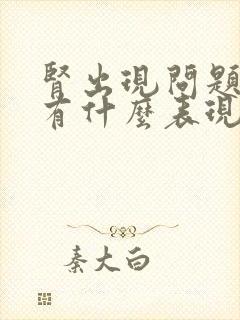 腎出現問題
有什麼表現
秦大白